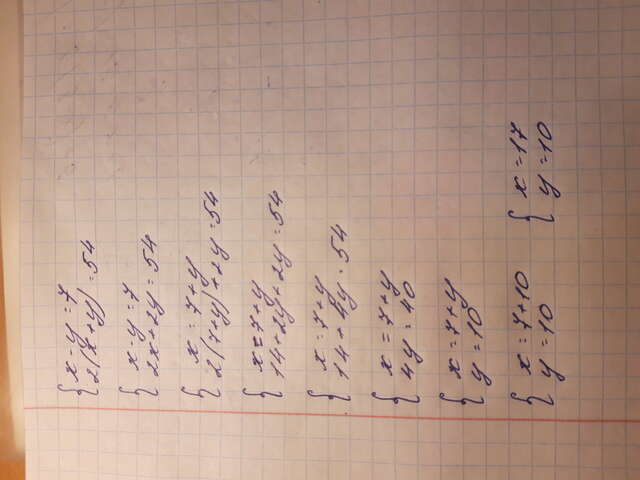 {x - y = 7
2(x + y) = 54
{x - y = 7
2x + 2y = 54
{x = 7 + y
2(7 + y) + 2y = 54
{x = 7 + y
14 + 2y + 2y = 54
{x = 7 + y
14 + 4y = 54
{x = 7 + y
4y = 40
{x = 7 + y
y = 10
{x = 7 + 10 {x = 17
y = 10 y = 10